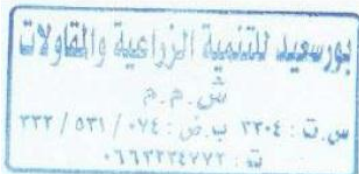 بورسعيد للتنمية الزراعية والمقاولات
ش.م.م
س.ت : ٣٣٠٤ ب.ض : ٠٧٤ / ٥٣١ / ٢٣٣
ت : ٠٦٦٣٢٢٤٧٧٢